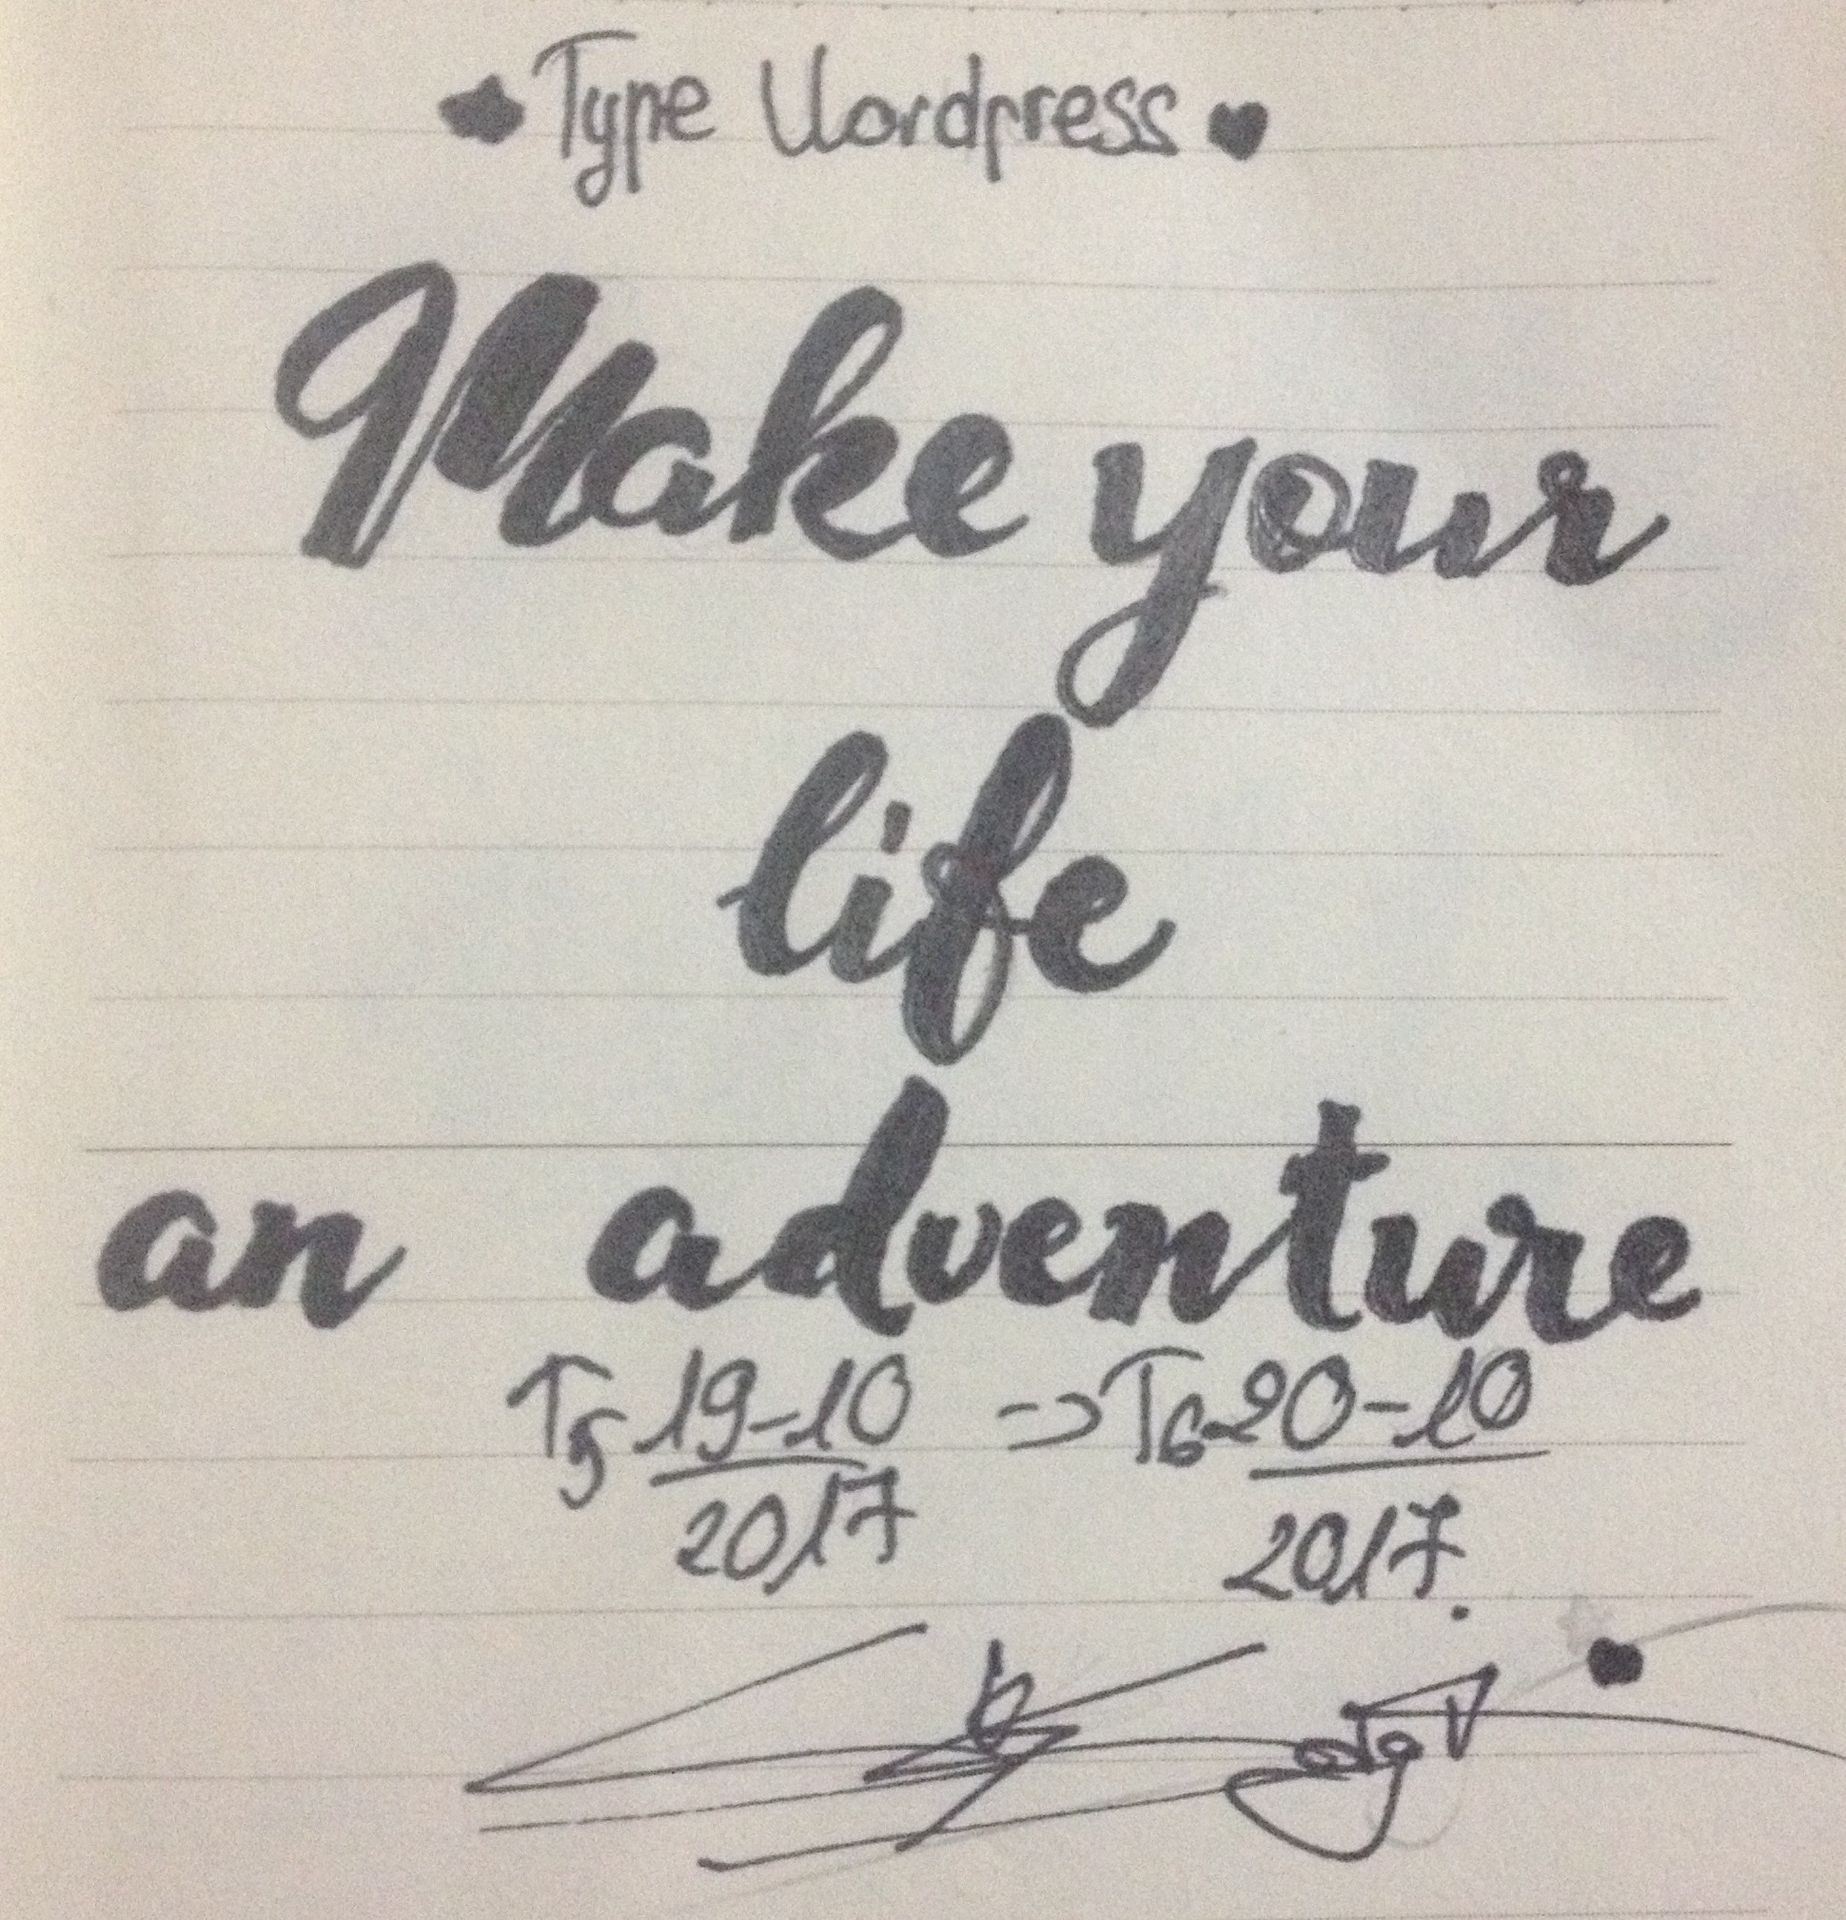 Type Wordpress
Make your
life
an adventure
T5 19-10 => T6 20-10
2017 2017